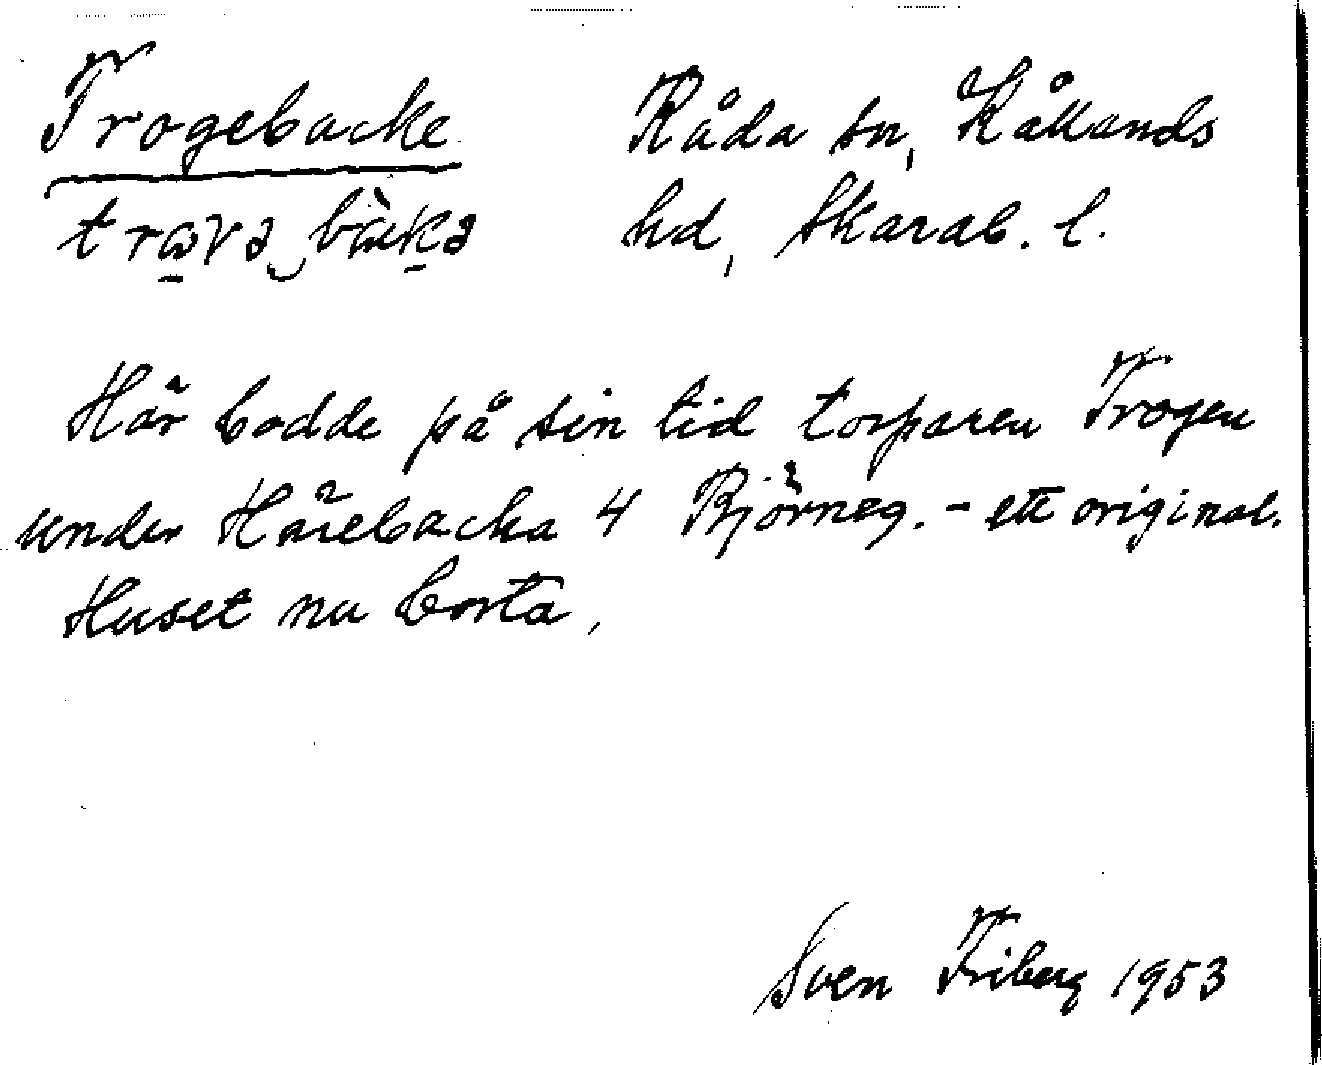 Trogebacke
Råda sn, Kållands
hd, Skarab. l.
Här bodde på sin tid torparen Trogen
under Härebacka 4 Björneg. - ett original.
Huset nu borta.
Sven Friberg 1953